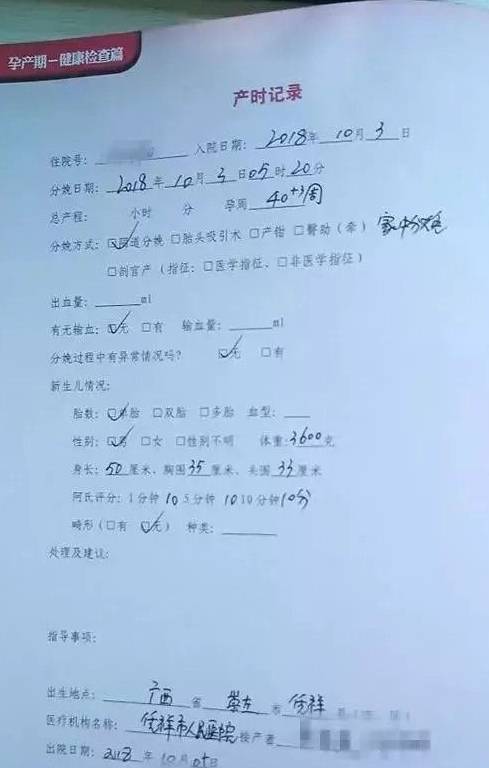 孕产期—健康检查篇
产时记录
住院号： 入院日期：2018年10月3日
分娩日期：2018年10月3日05时20分
总产程： 小时 分 孕周 40+3周
分娩方式：☑阴道分娩 □胎头吸引术 □产钳 □臀助（牵） 家中分娩
□剖宫产（指征：□医学指征、□非医学指征）
出血量：______ml
有无输血：☑无 □有 输血量：______ml
分娩过程中有异常情况吗？ ☑无 □有
新生儿情况：
胎数：☑单胎 □双胎 □多胎 血型：____
性别：☑男 □女 □性别不明 体重：3600克
身长：50厘米、胸围35厘米、头围33厘米
阿氏评分：1分钟 10 5分钟 10 10分钟 10分
畸形（□有 ☑无） 种类：________
处理及建议：
指导事项：
出生地点：广西 省 崇左 市 凭祥
医疗机构名称：凭祥市人民医院 接产者
出院日期：2018年10月05日